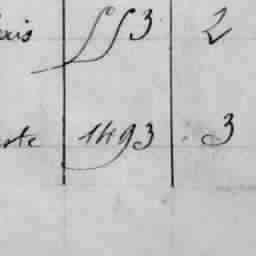 ais 553 2
rte 1493 3